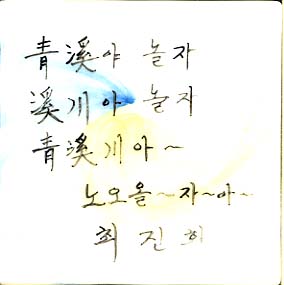 靑溪야 놀자
溪개야 놀자
靑溪개아~
노오올~자~아~
최진희